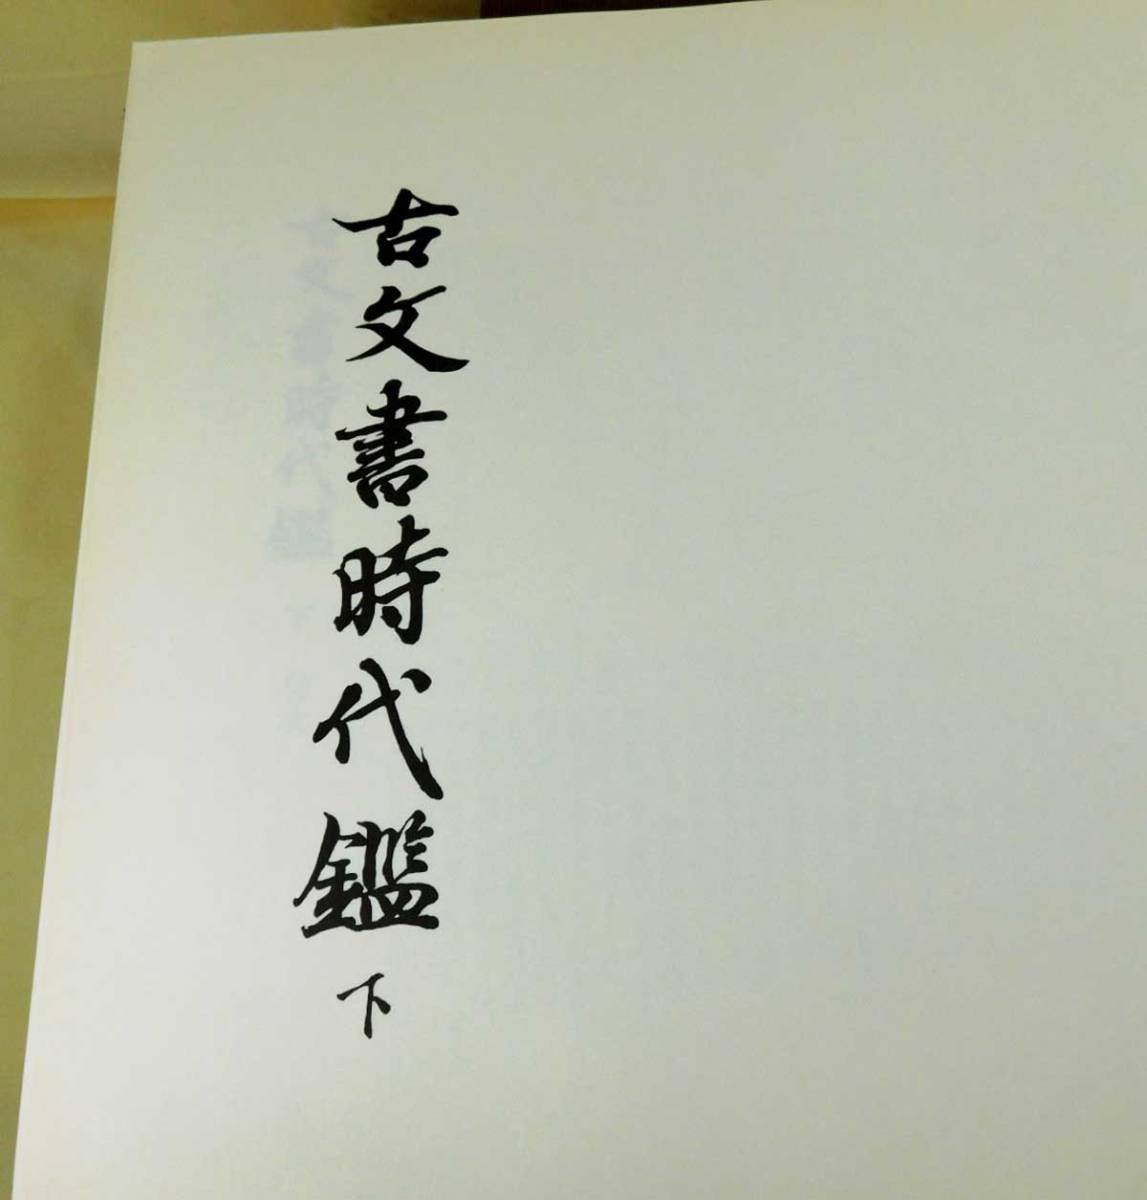 古文書時代鑑 下